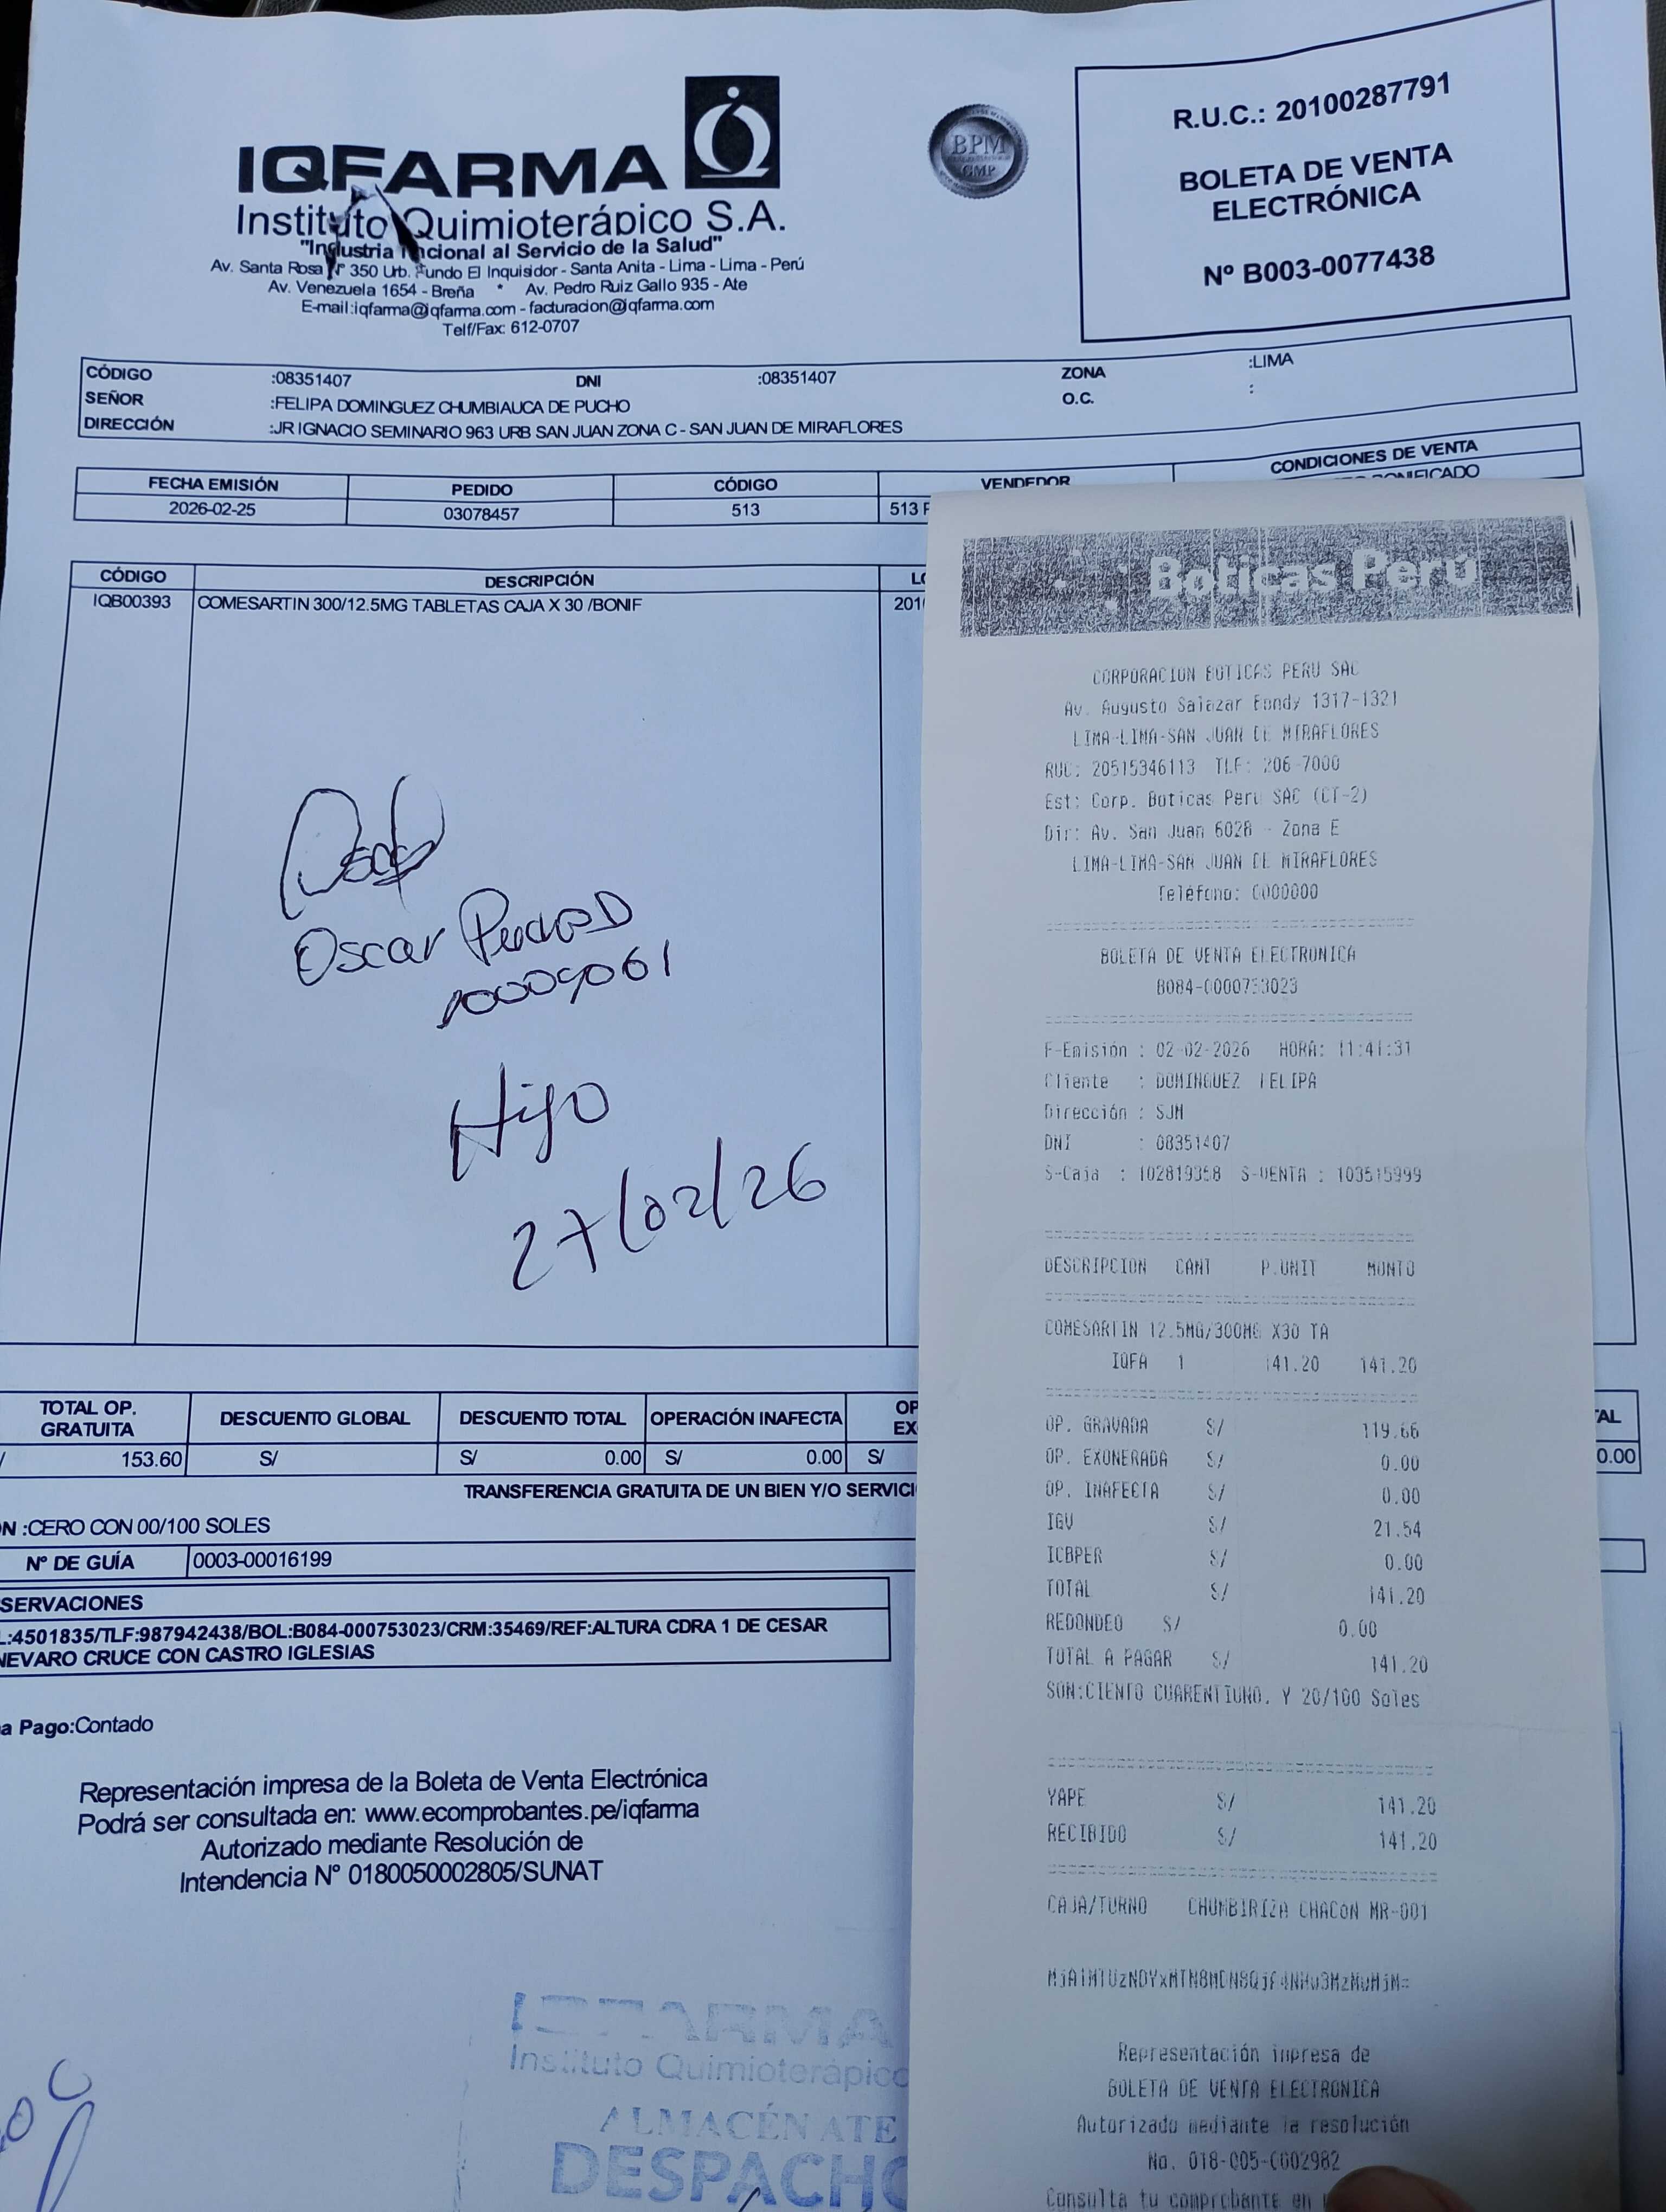 IQFARMA
Instituto Quimioterápico S.A.
"Industria Nacional al Servicio de la Salud"
Av. Santa Rosa Nº 350 Urb. Fundo El Inquisidor - Santa Anita - Lima - Lima - Perú
Av. Venezuela 1654 - Breña * Av. Pedro Ruiz Gallo 935 - Ate
E-mail:iqfarma@iqfarma.com - facturacion@iqfarma.com
Telf/Fax: 612-0707
BPM
GMP
R.U.C.: 20100287791
BOLETA DE VENTA
ELECTRÓNICA
Nº B003-0077438
CÓDIGO :08351407 DNI :08351407 ZONA :LIMA
SEÑOR :FELIPA DOMINGUEZ CHUMBIAUCA DE PUCHO O.C. :
DIRECCIÓN :JR IGNACIO SEMINARIO 963 URB SAN JUAN ZONA C - SAN JUAN DE MIRAFLORES
FECHA EMISIÓN PEDIDO CÓDIGO VENDEDOR CONDICIONES DE VENTA
2026-02-25 03078457 513 513
CÓDIGO DESCRIPCIÓN
IQB00393 COMESARTIN 300/12.5MG TABLETAS CAJA X 30 /BONIF 201
Oscar Pucho D
10009061
Hijo
27/02/26
TOTAL OP.
GRATUITA DESCUENTO GLOBAL DESCUENTO TOTAL OPERACIÓN INAFECTA OP
EX
153.60 S/ S/ 0.00 S/ 0.00 S/ 0.00
TRANSFERENCIA GRATUITA DE UN BIEN Y/O SERVICI
N :CERO CON 00/100 SOLES
Nº DE GUÍA 0003-00016199
SERVACIONES
L:4501835/TLF:987942438/BOL:B084-000753023/CRM:35469/REF:ALTURA CDRA 1 DE CESAR
NEVARO CRUCE CON CASTRO IGLESIAS
a Pago:Contado
Representación impresa de la Boleta de Venta Electrónica
Podrá ser consultada en: www.ecomprobantes.pe/iqfarma
Autorizado mediante Resolución de
Intendencia N° 0180050002805/SUNAT
IQFARMA
Instituto Quimioterápico
ALMACÉN ATE
DESPACHO
Boticas Perú
CORPORACION BOTICAS PERU SAC
Av. Augusto Salazar Bondy 1317-1321
LIMA-LIMA-SAN JUAN DE MIRAFLORES
RUC: 20515346113 TLF: 206-7000
Est: Corp. Boticas Peru SAC (CT-2)
Dir: Av. San Juan 6028 - Zona E
LIMA-LIMA-SAN JUAN DE MIRAFLORES
Teléfono: 0000000
BOLETA DE VENTA ELECTRONICA
B084-0000753023
F-Emisión : 02-02-2026 HORA: 11:41:31
Cliente : DOMINGUEZ FELIPA
Dirección : SJM
DNI : 08351407
S-Caja : 102819358 S-VENTA : 103515999
DESCRIPCION CANT P.UNIT MONTO
COMESARTIN 12.5MG/300MG X30 TA
IQFA 1 141.20 141.20
OP. GRAVADA S/ 119.66
OP. EXONERADA S/ 0.00
OP. INAFECTA S/ 0.00
IGV S/ 21.54
ICBPER S/ 0.00
TOTAL S/ 141.20
REDONDEO S/ 0.00
TOTAL A PAGAR S/ 141.20
SON:CIENTO CUARENTIUNO. Y 20/100 Soles
YAPE S/ 141.20
RECIBIDO S/ 141.20
CAJA/TURNO CHUMBIRIZA CHACON MR-001
Representación impresa de
BOLETA DE VENTA ELECTRONICA
Autorizado mediante la resolución
No. 018-005-0002982
Consulta tu comprobante en